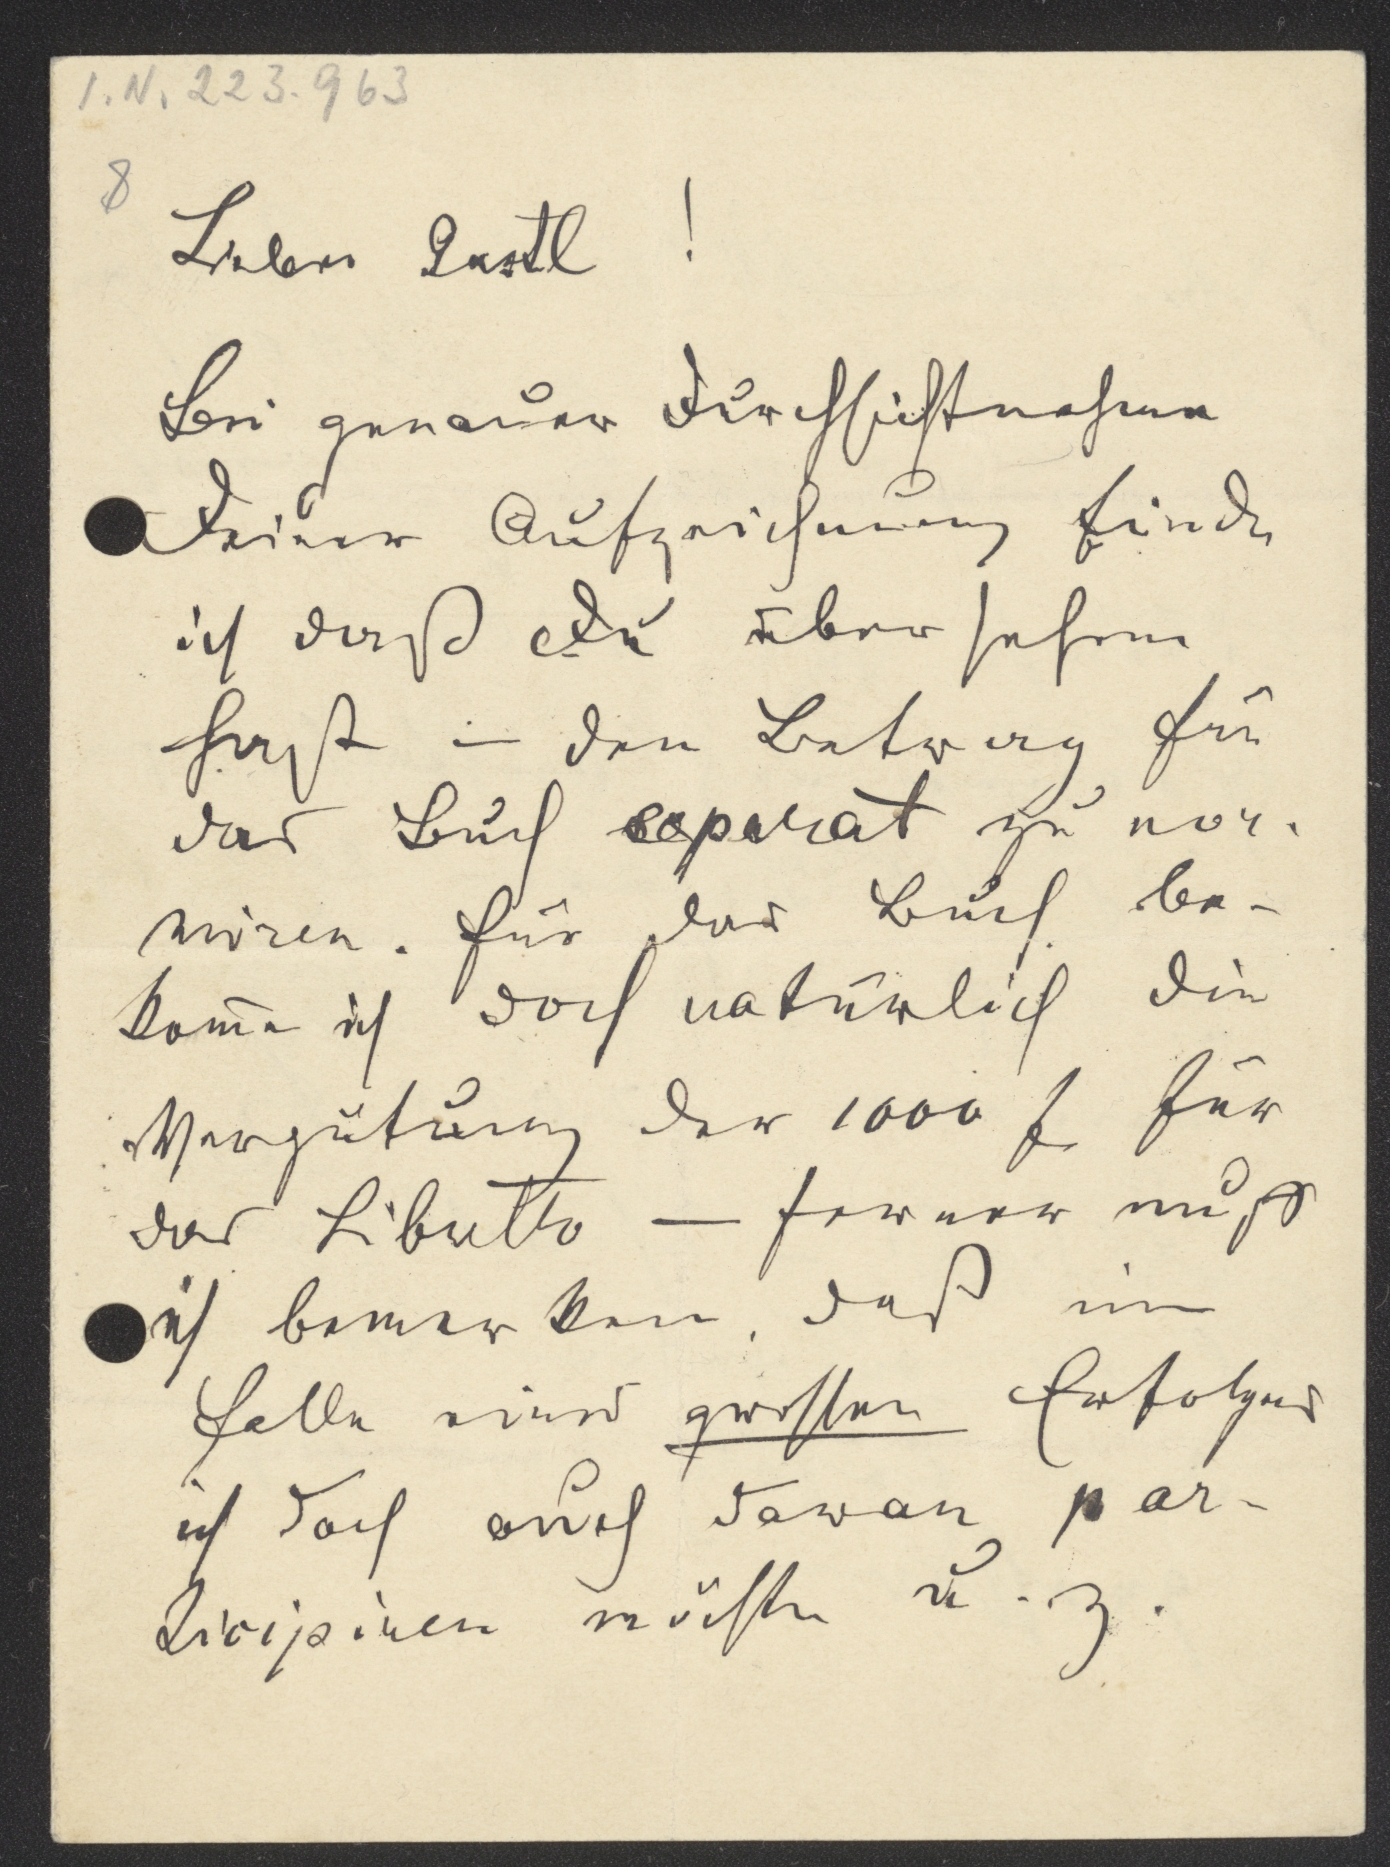 I.N. 223.963
8
Lieber Gustl!
Bei genauer Durchsichtnahme
Deiner Aufzeichnung finde
ich daß Du übersehen
hast – den Betrag für
das Buch separat zu nor-
miren. Für das Buch be-
kom̄e ich doch natürlich die
Vergütung der 1000 f für
das Libretto — ferner muß
ich bemerken, daß im
Falle eines grossen Erfolges
ich doch auch daran par-
ticipiren möchte u. z.